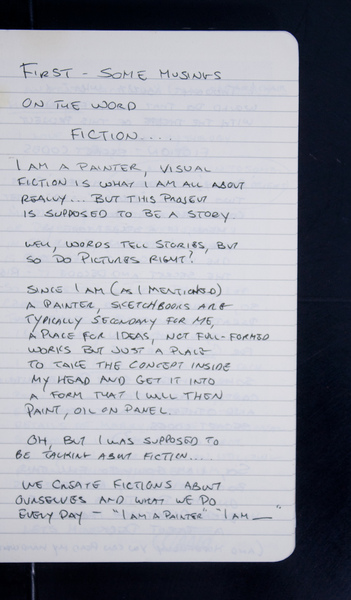 FIRST - SOME MUSINGS
ON THE WORD
FICTION....
I AM A PAINTER, VISUAL
FICTION IS WHAT I AM ALL ABOUT
REALLY... BUT THIS PROJECT
IS SUPPOSED TO BE A STORY.
WELL, WORDS TELL STORIES, BUT
SO DO PICTURES RIGHT?
SINCE I AM (AS I MENTIONED)
A PAINTER, SKETCHBOOKS ARE
TYPICALLY SECONDARY FOR ME,
A PLACE FOR IDEAS, NOT FULL-FORMED
WORKS BUT JUST A PLACE
TO TAKE THE CONCEPT INSIDE
MY HEAD AND GET IT INTO
A FORM THAT I WILL THEN
PAINT, OIL ON PANEL.
OH, BUT I WAS SUPPOSED TO
BE TALKING ABOUT FICTION.....
WE CREATE FICTIONS ABOUT
OURSELVES AND WHAT WE DO
EVERY DAY - "I AM A PAINTER" "I AM __"